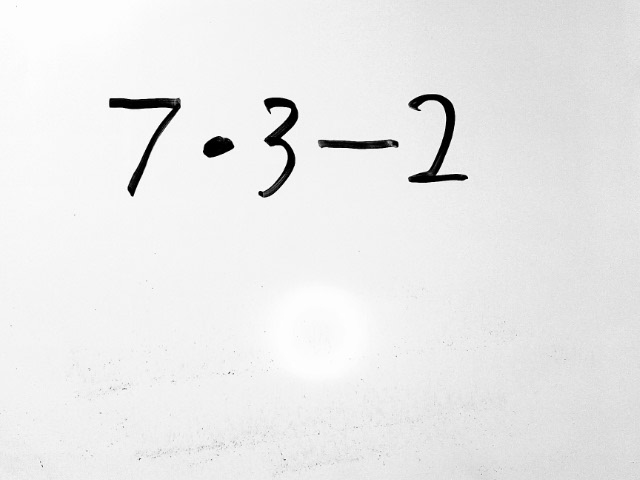 7·3-2